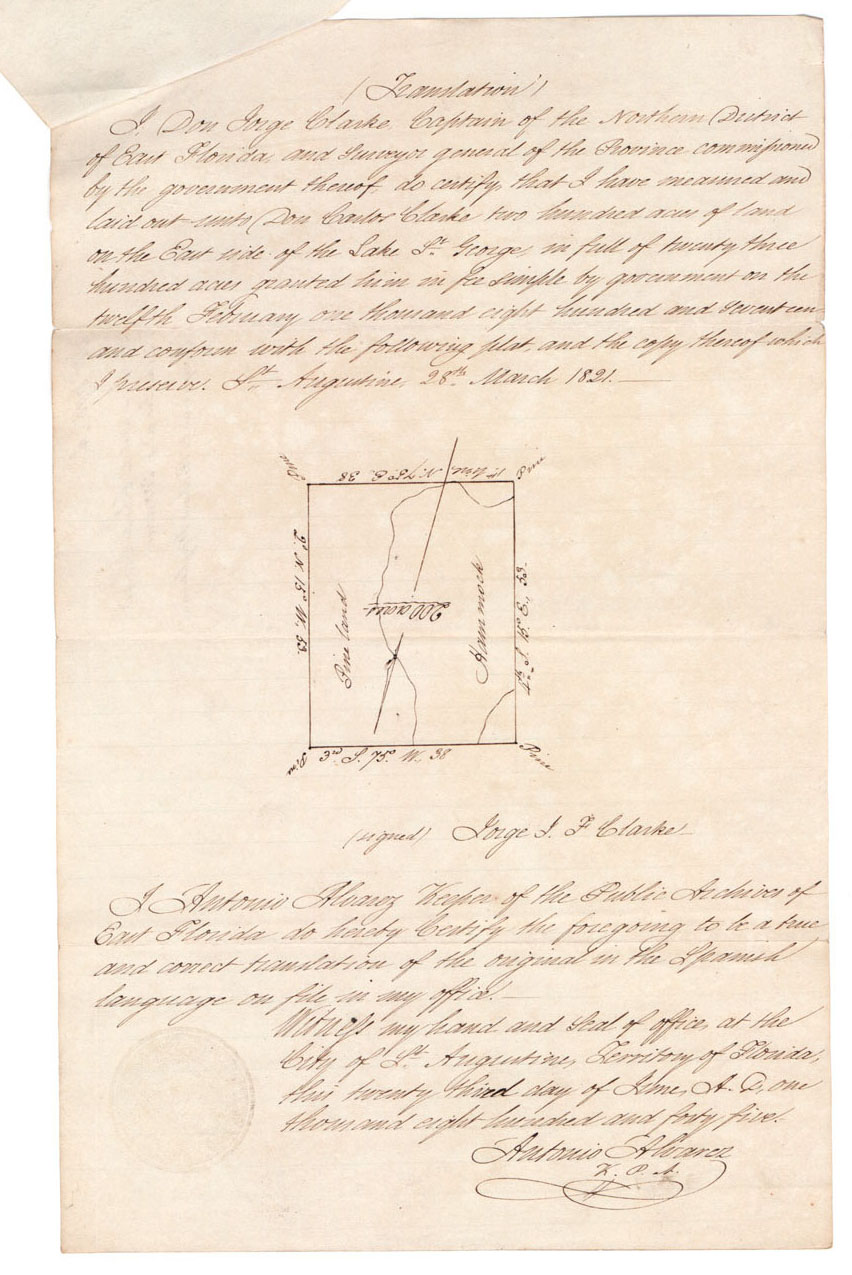 (Translation)
I, Don Jorge Clarke, Captain of the Northern District
of East Florida, and Surveyor general of the Province commissioned
by the government thereof do certify, that I have measured and
laid out unto Don Carlos Clarke two hundred acres of land
on the East side of the Lake St. George, in full of twenty three
hundred acres granted him in fee simple by government on the
twelfth February one thousand eight hundred and seventeen
and conform with the following plat, and the copy thereof which
I preserve. St. Augustine, 28th March 1821.
Pine
1st line N. 75° E. 38
Pine
2d N. 15° W. 53.
Pine land
200 acres
Hammock
4th S. 15° E., 53.
Pine
3rd S. 75° W. 38
Pine
(signed) Jorge J. F. Clarke
I Antonio Alvarez Keeper of the Public Archives of
East Florida do hereby Certify the foregoing to be a true
and correct translation of the original in the Spanish
language on file in my office.
Witness my hand and Seal of office, at the
City of St. Augustine, Territory of Florida,
this twenty third day of June, A. D. one
thousand eight hundred and forty five.
Antonio Alvarez
K. P. A.